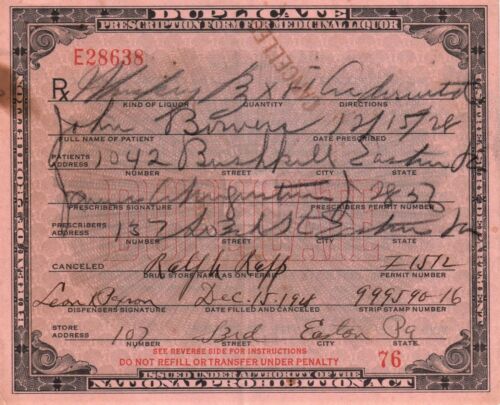 DUPLICATE
PRESCRIPTION FORM FOR MEDICINAL LIQUOR
E28638
CANCELLED
Rx Whiskey
KIND OF LIQUOR QUANTITY DIRECTIONS
John Bowers 12/15/28
FULL NAME OF PATIENT DATE PRESCRIBED
PATIENTS ADDRESS 1042 Bushkill Easton Pa
NUMBER STREET CITY STATE
PRESCRIBERS SIGNATURE PERMIT NUMBER
PRESCRIBERS ADDRESS 137 St Easton
NUMBER STREET CITY STATE
CANCELED Ralph Rapp
DRUG STORE NAME AS ON PERMIT PERMIT NUMBER
Leon Dec. 15. 1928 999590-16
DISPENSERS SIGNATURE DATE FILLED AND CANCELED STRIP STAMP NUMBER
STORE ADDRESS 107 Easton Pa
NUMBER STREET CITY STATE
SEE REVERSE SIDE FOR INSTRUCTIONS
DO NOT REFILL OR TRANSFER UNDER PENALTY 76
ISSUED UNDER AUTHORITY OF THE
NATIONAL PROHIBITION ACT
BUREAU OF PROHIBITION
DUPLICATE